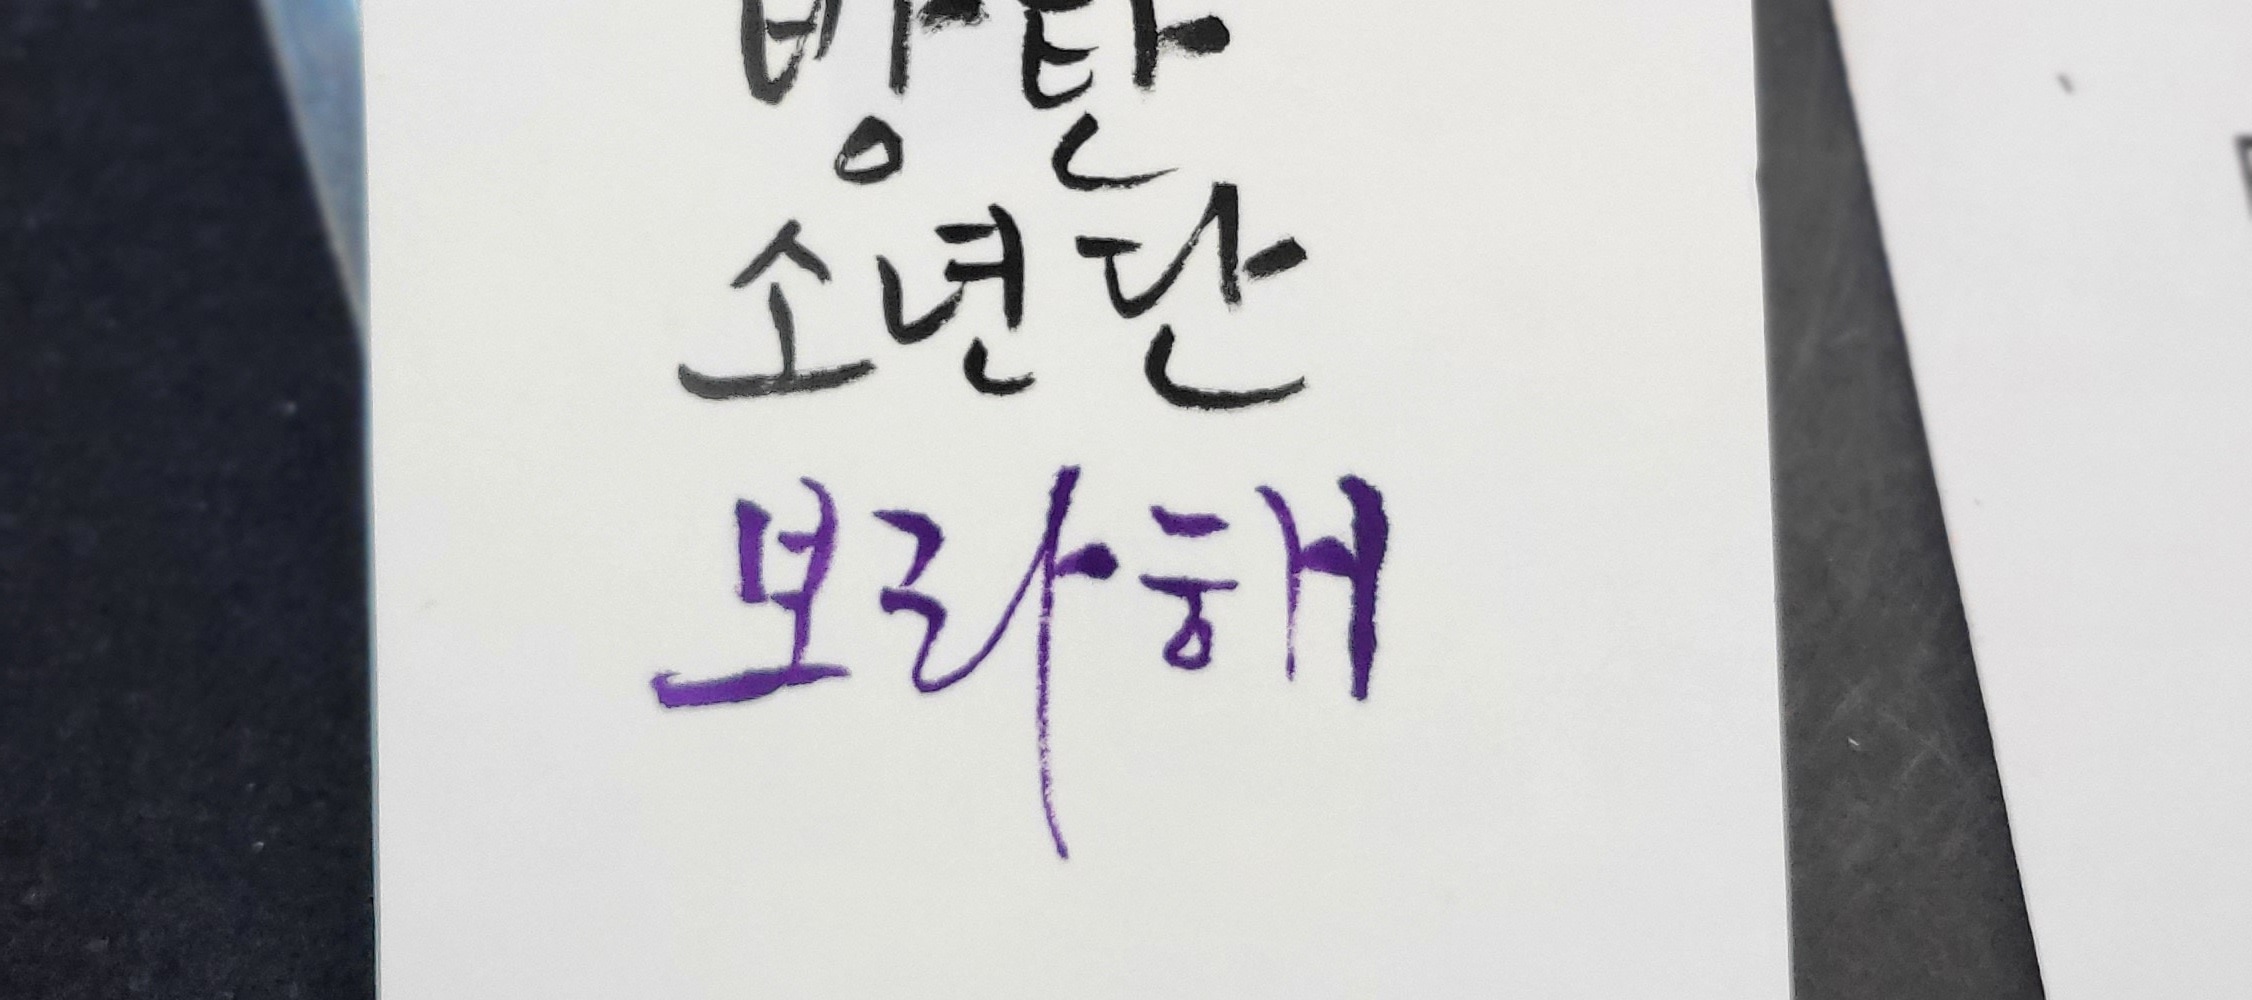 방탄
소년단
보라해